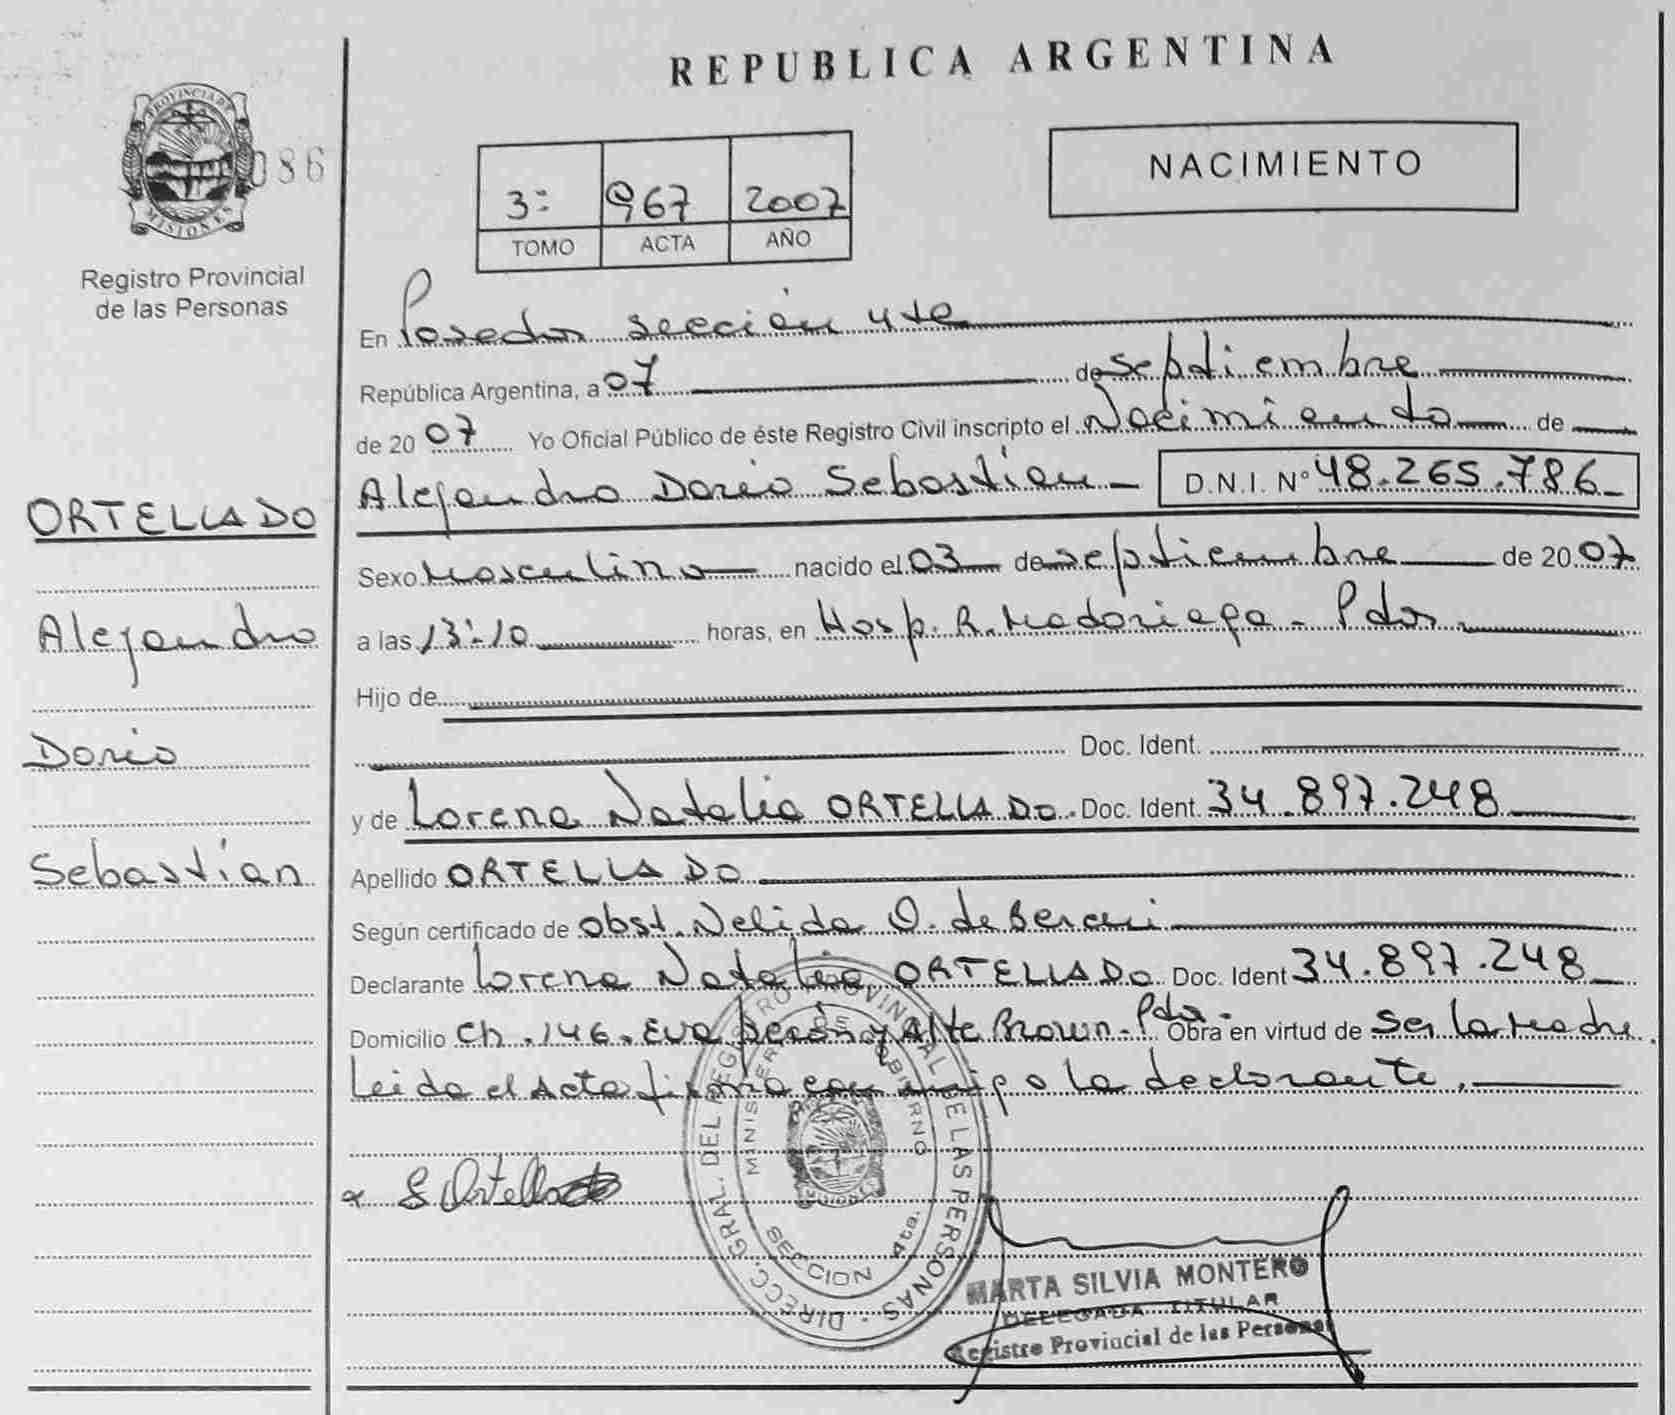 REPUBLICA ARGENTINA
PROVINCIA DE
MISIONES
086
Registro Provincial
de las Personas
3º 967 2007
TOMO ACTA AÑO
NACIMIENTO
En Posadas sección 4ta
República Argentina, a 07 de septiembre
de 2007 Yo Oficial Público de éste Registro Civil inscripto el Nacimiento de
Alejandro Dario Sebastian D.N.I. Nº 48.265.786
Sexo Masculino nacido el 03 de septiembre de 2007
a las 13:10 horas, en Hosp. R. Madariaga - Pdas
Hijo de
Doc. Ident.
y de Lorena Natalia ORTELLADO. Doc. Ident. 34.897.248
Apellido ORTELLADO
Según certificado de Obst. Nelida O. de
Declarante Lorena Natalia ORTELLADO Doc. Ident 34.897.248
Domicilio Ch. 146. Eva Perón y Alte Brown - Pdas. Obra en virtud de Ser la Madre.
Leida el Acta firma conmigo la declarante.
ORTELLADO
Alejandro
Dario
Sebastían
DIRECC. GRAL. DEL REGISTRO PROVINCIAL DE LAS PERSONAS
MINISTERIO DE GOBIERNO
SECCION 4ta.
MARTA SILVIA MONTERO
DELEGADA TITULAR
Registro Provincial de las Personas